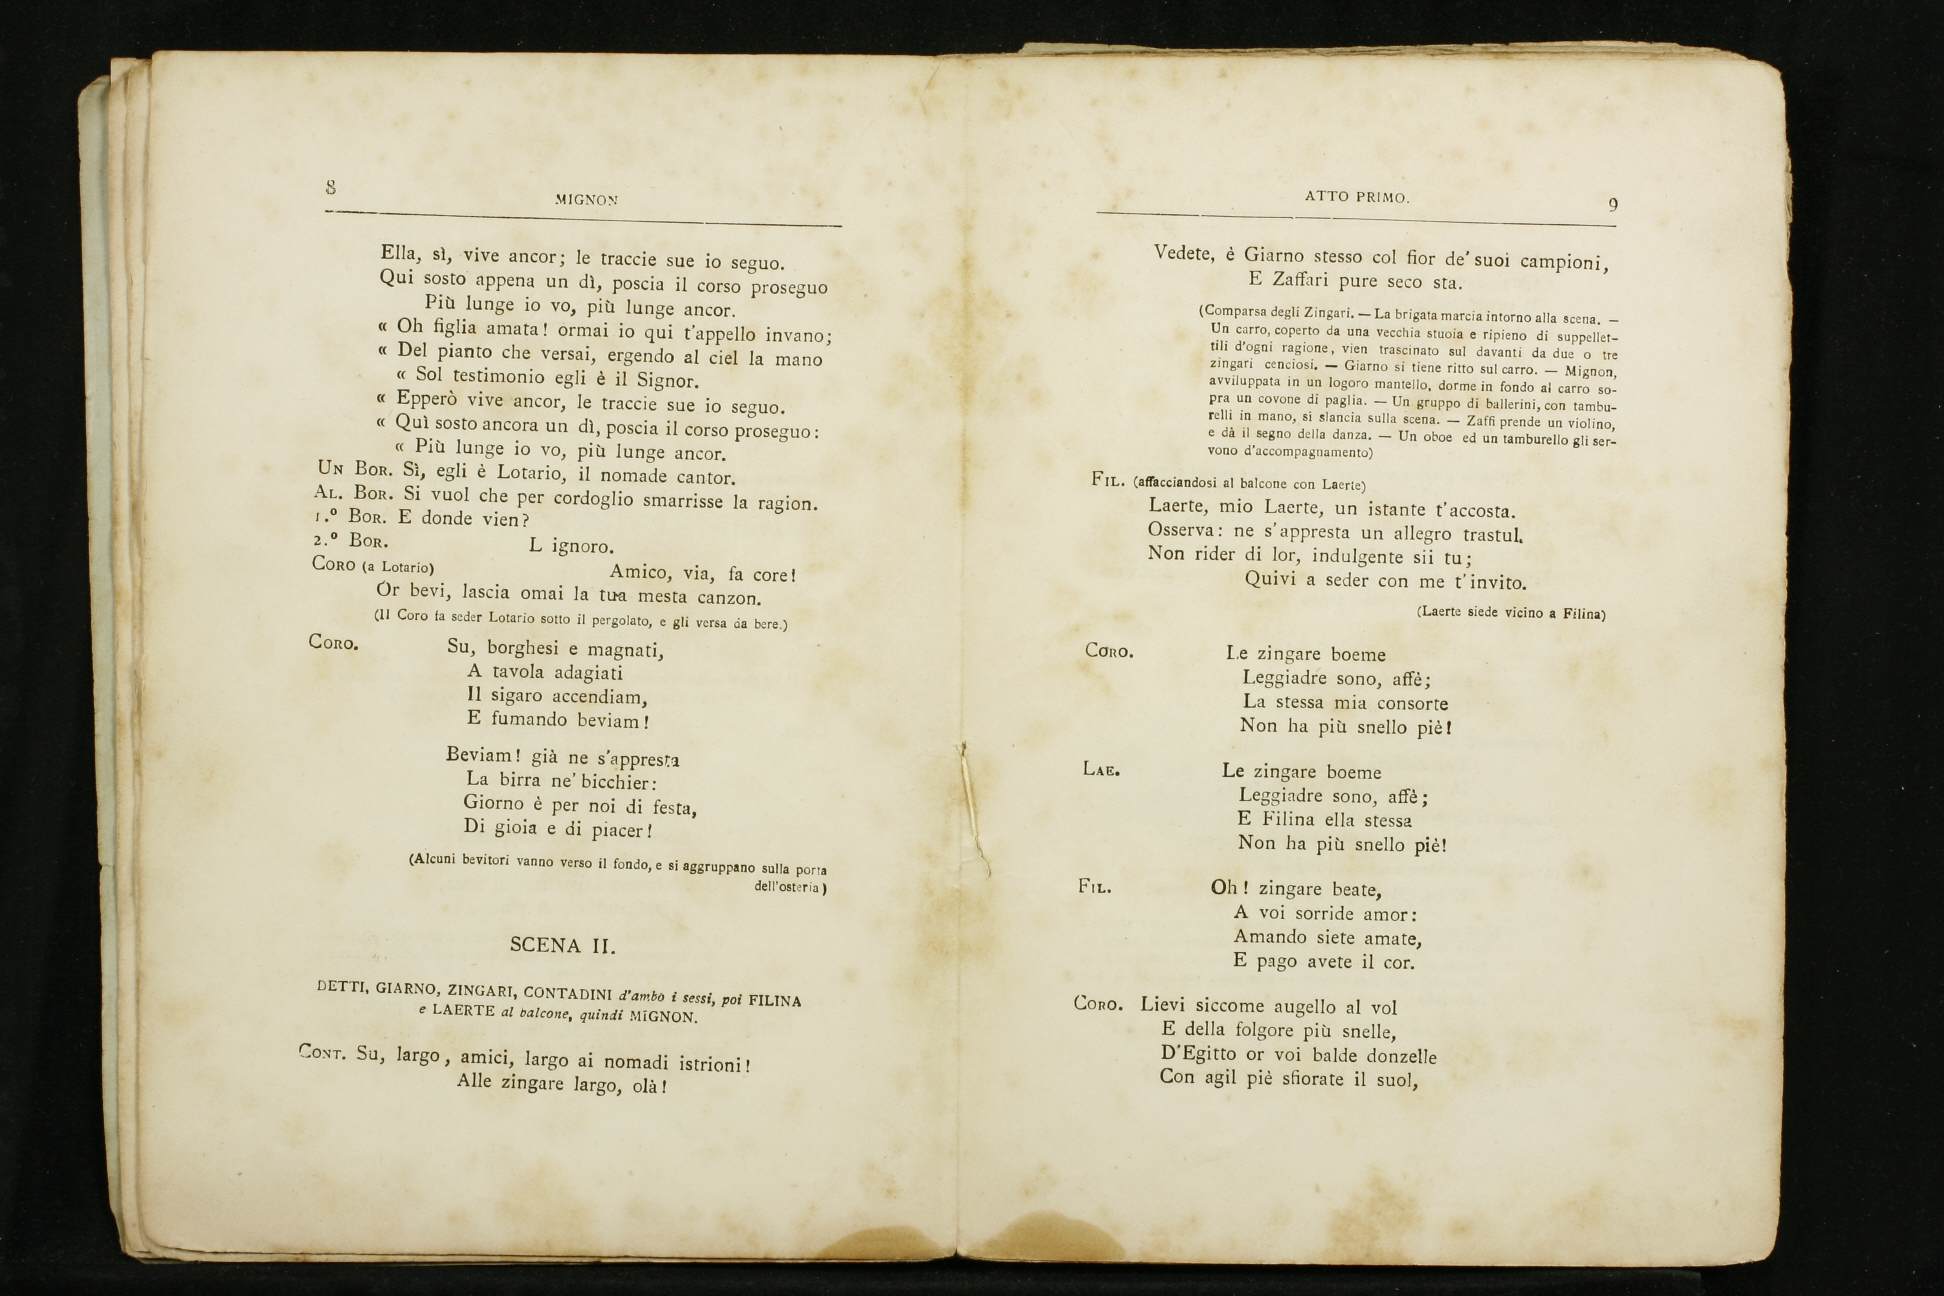 8
MIGNON
Ella, sì, vive ancor; le traccie sue io seguo.
Qui sosto appena un dì, poscia il corso proseguo
Più lunge io vo, più lunge ancor.
« Oh figlia amata! ormai io qui t'appello invano;
« Del pianto che versai, ergendo al ciel la mano
« Sol testimonio egli è il Signor.
« Epperò vive ancor, le traccie sue io seguo.
« Quì sosto ancora un dì, poscia il corso proseguo:
« Più lunge io vo, più lunge ancor.
UN BOR. Sì, egli è Lotario, il nomade cantor.
AL. BOR. Si vuol che per cordoglio smarrisse la ragion.
1.º BOR. E donde vien?
2.º BOR. L ignoro.
CORO (a Lotario) Amico, via, fa core!
Or bevi, lascia omai la tua mesta canzon.
(Il Coro fa seder Lotario sotto il pergolato, e gli versa da bere.)
CORO. Su, borghesi e magnati,
A tavola adagiati
Il sigaro accendiam,
E fumando beviam!
Beviam! già ne s'appresta
La birra ne' bicchier:
Giorno è per noi di festa,
Di gioia e di piacer!
(Alcuni bevitori vanno verso il fondo, e si aggruppano sulla porta
dell'osteria)
SCENA II.
DETTI, GIARNO, ZINGARI, CONTADINI d'ambo i sessi, poi FILINA
e LAERTE al balcone, quindi MIGNON.
CONT. Su, largo, amici, largo ai nomadi istrioni!
Alle zingare largo, olà!
ATTO PRIMO.
9
Vedete, è Giarno stesso col fior de' suoi campioni,
E Zaffari pure seco sta.
(Comparsa degli Zingari. — La brigata marcia intorno alla scena. —
Un carro, coperto da una vecchia stuoia e ripieno di suppellet-
tili d'ogni ragione, vien trascinato sul davanti da due o tre
zingari cenciosi. — Giarno si tiene ritto sul carro. — Mignon,
avviluppata in un logoro mantello, dorme in fondo al carro so-
pra un covone di paglia. — Un gruppo di ballerini, con tambu-
relli in mano, si slancia sulla scena. — Zaffi prende un violino,
e dà il segno della danza. — Un oboe ed un tamburello gli ser-
vono d'accompagnamento)
FIL. (affacciandosi al balcone con Laerte)
Laerte, mio Laerte, un istante t'accosta.
Osserva: ne s'appresta un allegro trastul.
Non rider di lor, indulgente sii tu;
Quivi a seder con me t'invito.
(Laerte siede vicino a Filina)
CORO. Le zingare boeme
Leggiadre sono, affè;
La stessa mia consorte
Non ha più snello piè!
LAE. Le zingare boeme
Leggiadre sono, affè;
E Filina ella stessa
Non ha più snello piè!
FIL. Oh! zingare beate,
A voi sorride amor:
Amando siete amate,
E pago avete il cor.
CORO. Lievi siccome augello al vol
E della folgore più snelle,
D'Egitto or voi balde donzelle
Con agil piè sfiorate il suol,